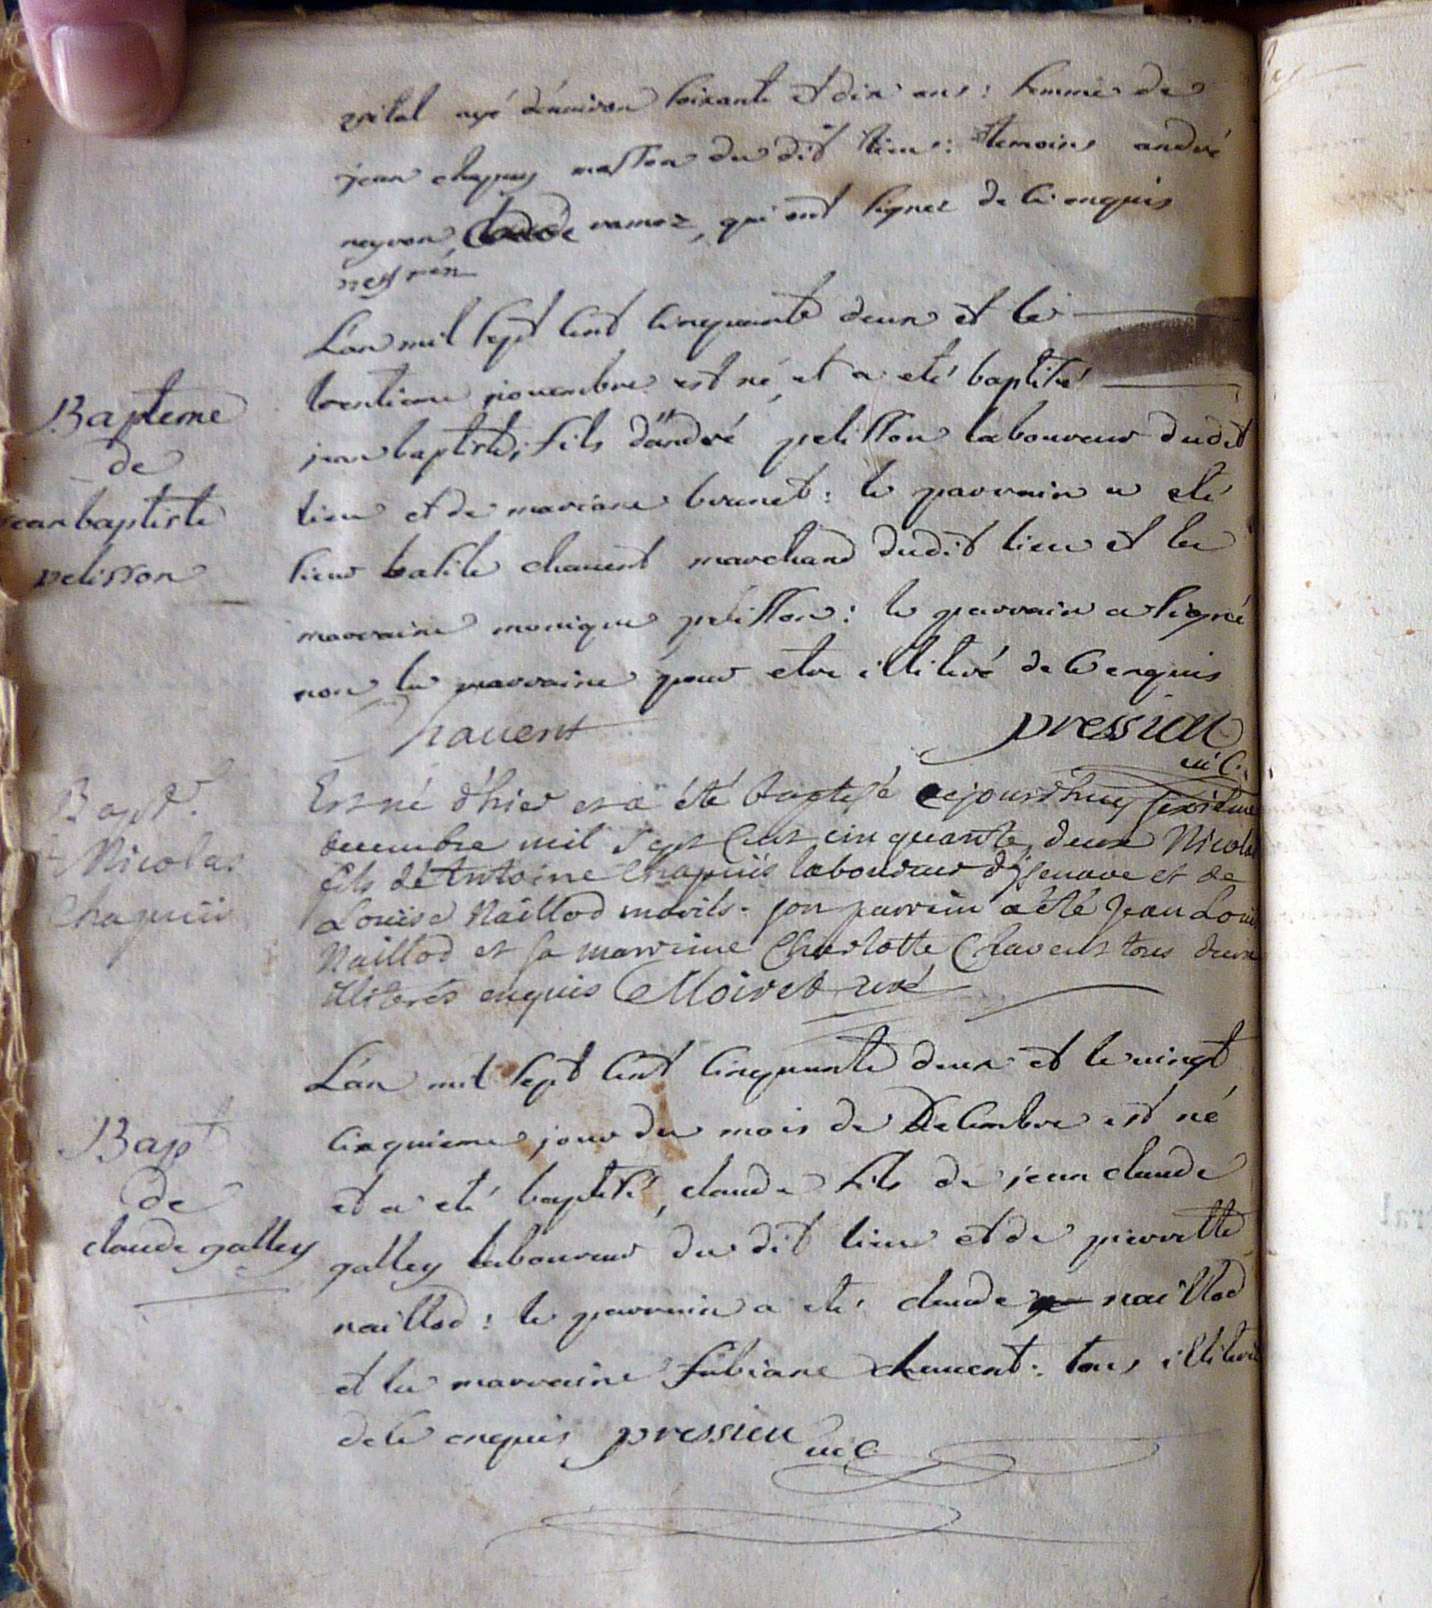 vital agé d'environ soixante et dix ans : femme de
jean chapuy masson du dit lieu : temoins andré
neyron, claude ramoz, qui ont signez de ce enquis
L'an mil sept cent cinquante deux et le
trentieme novembre est né, et a eté baptisé
Bapteme
de
jean baptiste
pelisson
jean baptiste, fils d'andré pelisson laboureur dudit
lieu et de mariane brunet : le parrain a eté
sieur basile chavent marchand dudit lieu et la
marraine monique pelisson : le parrain a signé
non la marraine pour etre illiteré de ce enquis
Chavent pressieu
vic.
Bapt.
Nicolas
Chapuiis
Est né d'hier et a été baptisé cejourdhuy sixieme
decembre mil sept cent cinquante deux Nicolas
fils de Antoine Chapuiis laboureur d'Isenave et de
Louise Naillod mariés. son parrein a été Jean Louis
Naillod et sa marreine Charlotte Chavent tous deux
illiterés enquis Moiret curé
L'an mil sept cent cinquante deux et le vingt
cinquieme jour du mois de decembre est né
Bapt
de
claude galley
et a eté baptisé, claude fils de jean claude
galley laboureur du dit lieu et de pierrette
naillod : le parrain a eté claude naillod
et la marraine fabiane chavent : tous illiteré
de ce enquis pressieu vic.